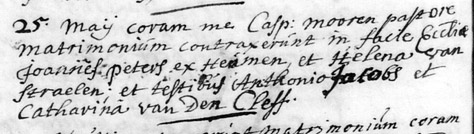 25. Maÿ coram me Casp: mooren pastore
matrimonium contraxerunt in facie Eccliae
Joannes Peters ex Heumen, et Helena van
Straelen: et testibus Anthonio Jacobs et
Catharina van Den Cleff.
matrimonium coram